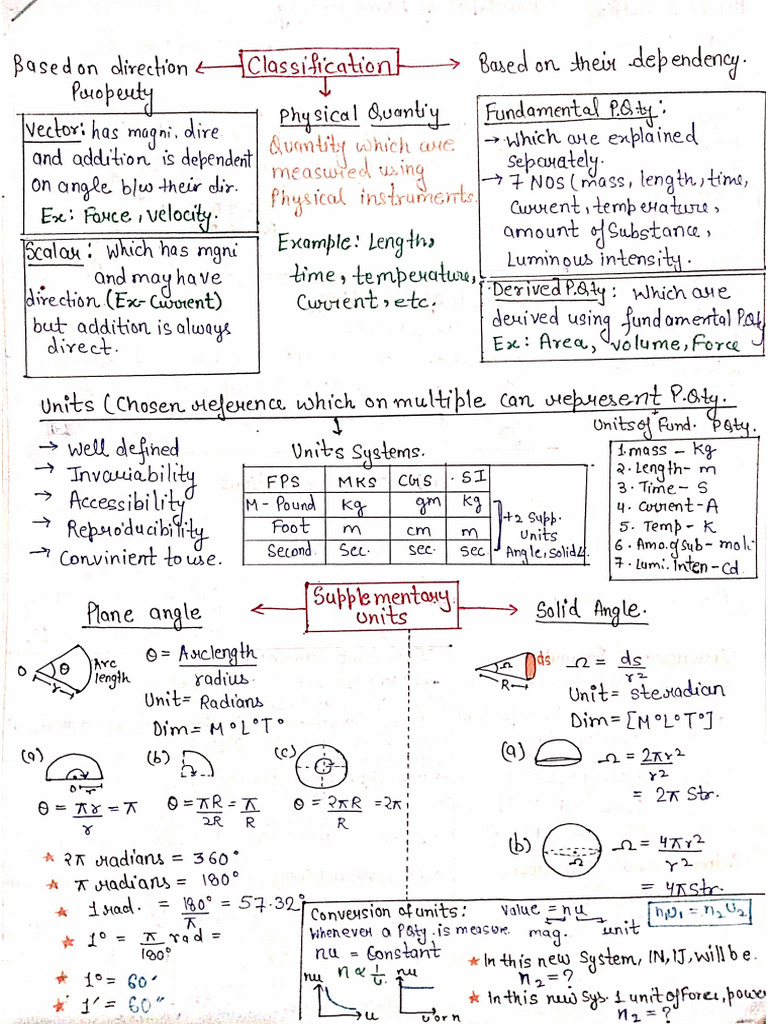 Classification
Based on direction
Property
Vector: has magni, dire
and addition is dependent
on angle b/w their dir.
Ex: Force, velocity.
Scalar: which has mgni
and may have
direction (Ex- Current)
but addition is always
direct.
Physical Quantiy
Quantity which are
measured using
Physical instruments.
Example: Length,
time, temperature,
Current, etc.
Based on their dependency.
Fundamental P.Qty:
→ which are explained
separately.
→ 7 NOS (mass, length, time,
Current, temperature,
amount of Substance,
Luminous intensity.
Derived P.Qty: which are
derived using fundamental P.Qty
Ex: Area, volume, Force
Units (Chosen reference which on multiple can represent P.Qty.
→ Well defined
→ Invariability
→ Accessibility
→ Reproducibility
→ Convinient to use.
Units Systems.
FPS MKS CGS SI
M - Pound kg gm kg
Foot m cm m
Second Sec. sec. sec
+2 Supp.
Units
Angle, Solid∠
Units of Fund. PQty.
1. mass - Kg
2. Length - m
3. Time - S
4. Current - A
5. Temp - K
6. Amo. of sub - mol
7. Lumi. Inten - Cd.
Supplementary
Units
Plane angle
O θ r Arc
length
θ = Arc length
radius
Unit = Radians
Dim = M°L°T°
(a) (b) (c)
θ = πr = π
r
θ = πR = π
2R R
θ = 2πR = 2π
R
★ 2π radians = 360°
★ π radians = 180°
★ 1 rad. = 180° = 57.32°
π
★ 1° = π rad =
180°
★ 1° = 60'
★ 1' = 60"
Solid Angle.
Ω ds
R
Ω = ds
r²
Unit = steradian
Dim = [M°L°T°]
(a) Ω = 2πr²
r²
= 2π Str.
(b) Ω Ω = 4πr²
r²
= 4π Str.
Conversion of units: value = nu
mag. unit
n₁u₁ = n₂u₂
Whenever a PQty. is measure.
nu = Constant
n ∝ 1
u
nu u
nu u or n
★ In this new System, 1N, 1J, will be.
n₂ = ?
★ In this new Sys. 1 unit of Force, power
n₂ = ?